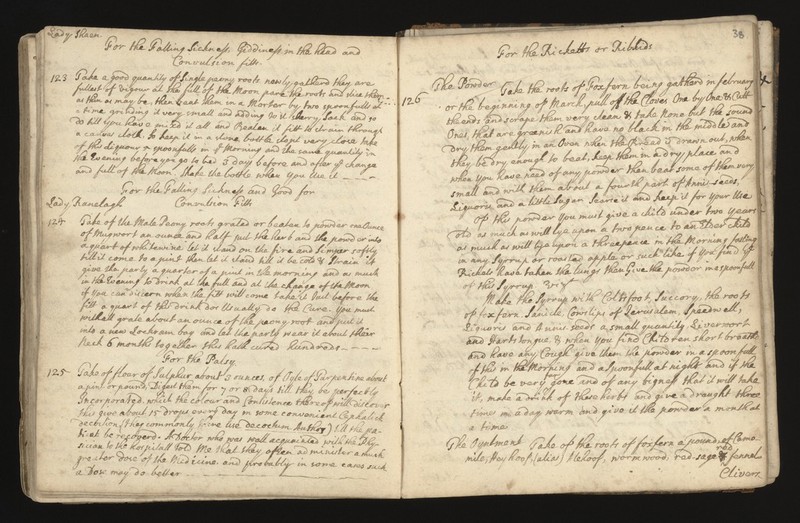 Lady Skeen.
For the Falling Sickness, Giddiness in the head and
Convultion fitts.
123 Take a good quantity of single peony roots newly gathered they are
fullest of Vigour at the full of the Moon pare the roots and slice them
as thin as may be, then beat them in a Morter by two spoonfulls at
a time grinding it very small and adding to it Sherry Sack and so
do till you have mixed it all and Beaten it fitt to strain through
a canvis cloth. So keep it in a stone bottle stopt very close take
of this Liquour spoonfulls in ye Morning and the same quantity in
the Evening before you go to bed 3 days before and after ye change
and full of the Moon. Shake the bottle when you use it
For the Falling Sickness and Good for
Lady Ranelagh Convultion Fitts
124 Take of the Male Peony roots grated or beaten to powder one Ounce
of Mugwort an ounce and half put the herb and the powder into
a quart of whitewine let it stand on the fire and simper softly
till it come to a pint then let it stand till it be cold & strain it
give the party a quarter of a pint in the morning and as much
in the Evening to drink at the full and at the change of the Moon
if you can discern when the fitt will come take it but before the
fitt a quart of this drink dos Usually do the Cure. You must
withall grate about an ounce of the peony root and put it
into a new Lockram bag and let the party wear it about their
Neck 6 months together this hath cured hundreds
For the Palsy
125 Take of flour of Sulphur about 3 ounces, of Oyle of Turpentine about
a pint or pound, Digest them for 7 or 8 days till they be perfectly
Incorporated, which the colour and Consistence thereof will discover
this give about 15 drops every day in some convenient Cephalick
decoction (they commonly there use decoctum Anthos) till the pa-
tient be recovered. A Doctor who was well acquainted with the Phy-
sician to the Hospitall told Me that they often administer a much
greater Dose of the Medicine and probably in some cases such
a Dose may do better
38
For the Ricketts or Riboids
126 The Powder Take the roots of Foxfern being gatherd in february
or the beginning of March, pull of the Cloves One by One & Cutt
the ends and scrape them very clean & take None but the sound
Ones, that are greenish and have no black in the middle and
Dry them gently in an Oven when the bread is drawn out, when
they be dry enough to beat, keep them in a dry place, and
when you have need of any powder then beat some of them very
small and with them about a fourth part of Annis-seeds,
Liquoris and a little Sugar Searce it and keep it for your Use
Of this powder You must give a child under two years
old as much as will lye upon a two pence to an Elder child
as much as will lye upon a threepence in the Morning fasting
in any Syrrup or roasted apple or such like if you find ye
Rickets hath taken the lungs then Give the powder in a spoonfull
of this Syrrup
Make the Syrrup with Coltsfoot, Succory, the roots
of foxfern, Sanicle, Cowslips of Jerusalem, Speedwell,
Liquoris and Annis seeds a small quantity Liverwort
and Harts tongue. & when you find Children short breath
and have any Cough give them the powder in a spoonfull
of this in the Morning and a Spoonfull at night and if the
Child be very gone and of any bigness that it will take
it, make a drink of these herbs and give a draught three
times in a day warm and give it the powder a month at
a time
The Oyntment Take of the roots of foxfern a pound, of Camo-
mile, Hay hoof (alias) Alehoof, wormwood, red-sage red fennel
Clivers